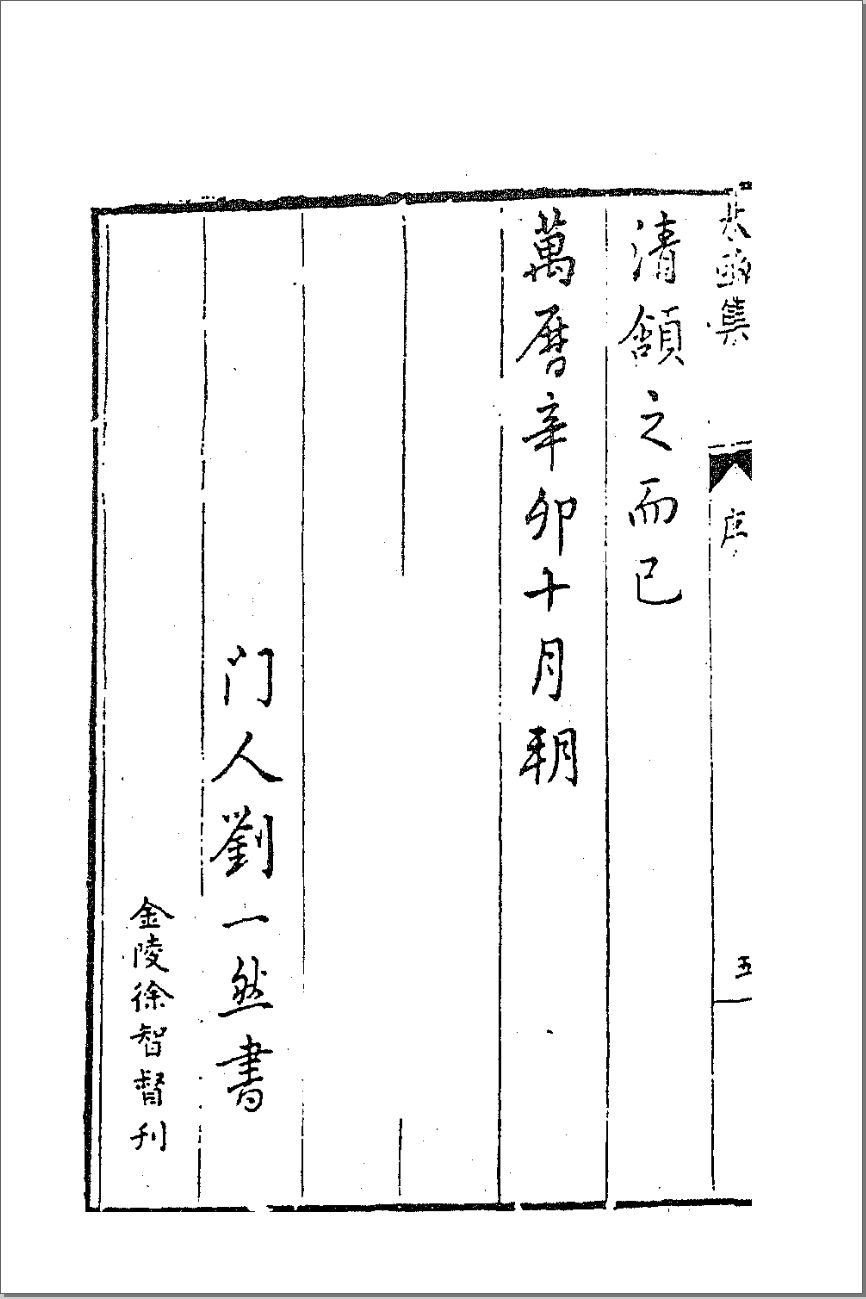 太函集
序
五
清頷之而已
萬曆辛卯十月朝
门人劉一然書
金陵徐智督刊